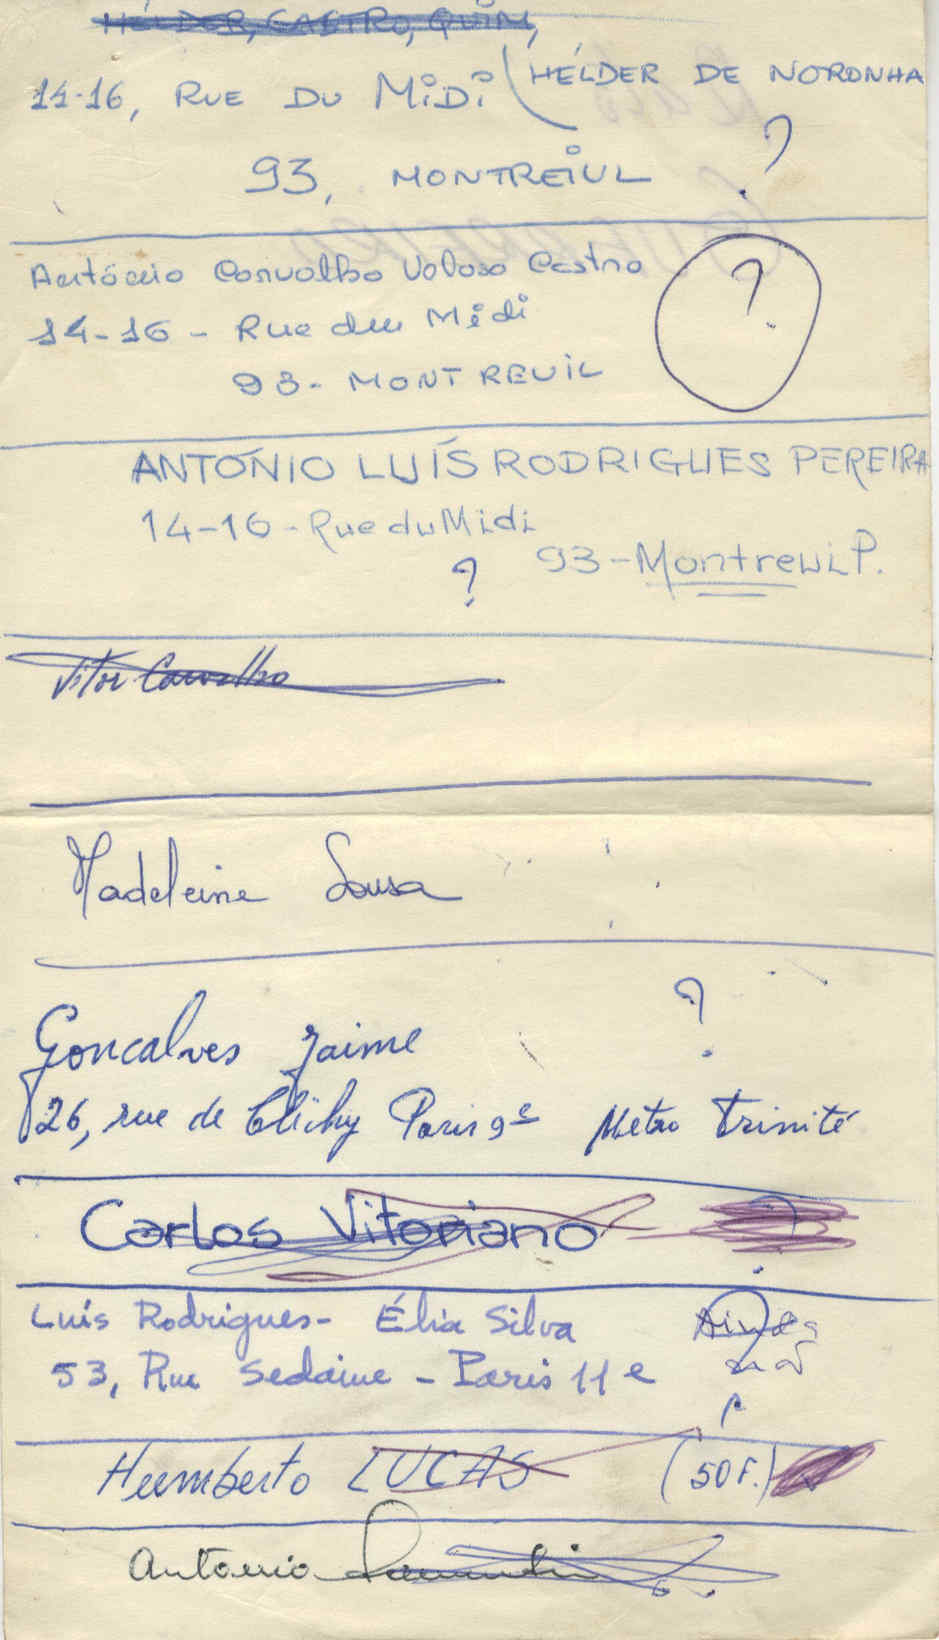 HÉLDER, CASTRO, QUIM,
14-16, RUE DU MiDi (HÉLDER DE NORONHA
93, MONTREIUL ?
António Carvalho Veloso Castro ?
14-16 - Rue du Midi
93 - MONTREUIL
ANTÓNIO LUÍS RODRIGUES PEREIRA
14-16 - Rue du Midi
? 93 - Montreuil.
Vitor Carvalho
Madeleine Sousa
Goncalves Jaime ?
26, rue de Clichy Paris 9e Metro Trinité
Carlos Vitoriano ?
Luís Rodrigues - Élia Silva Ainda
53, Rue Sedaine - Paris 11e não
?
Humberto LUCAS (50F.)
Antonio